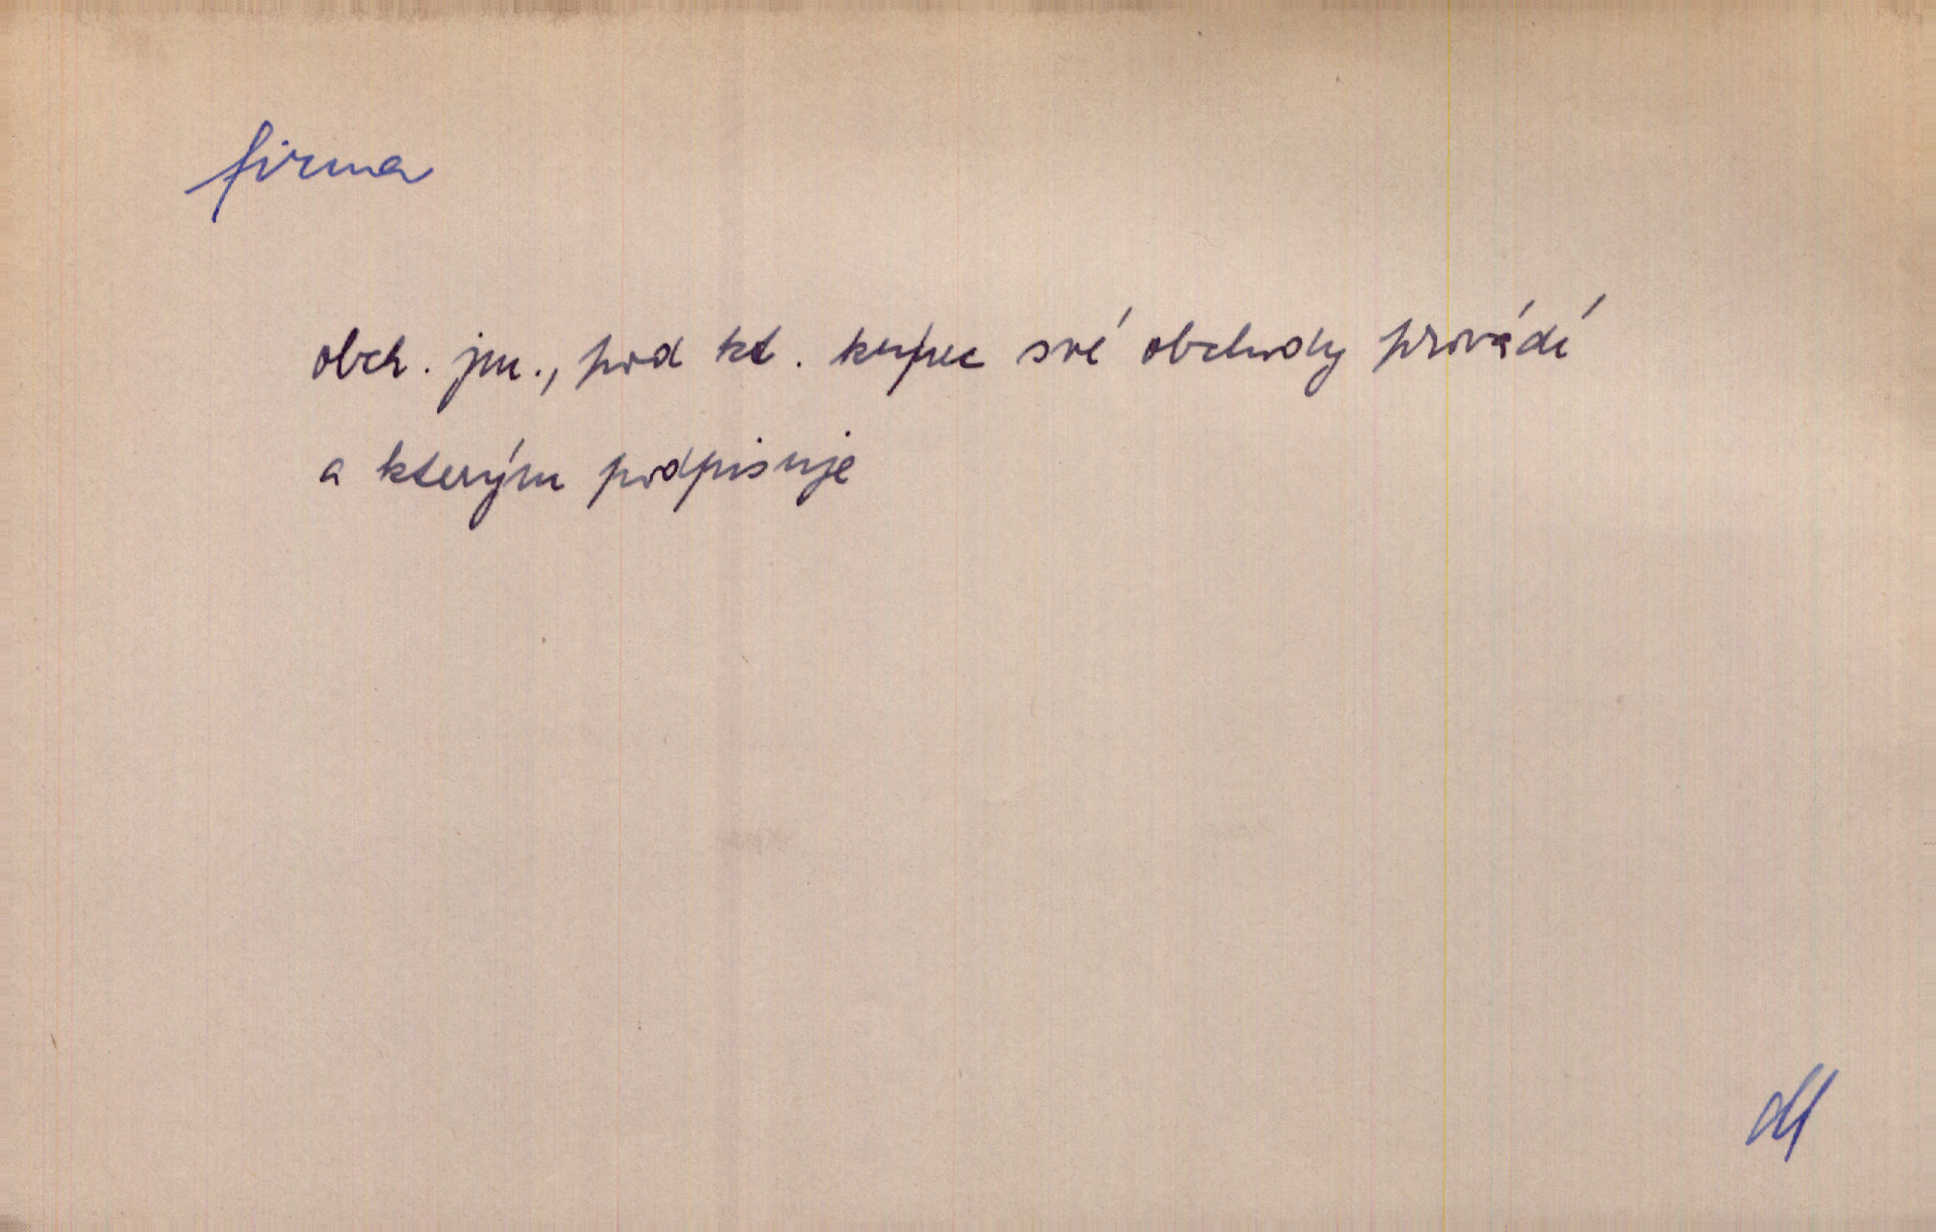 firma
obch. jm., pod kt. kupec své obchody provádí
a kterým podpisuje